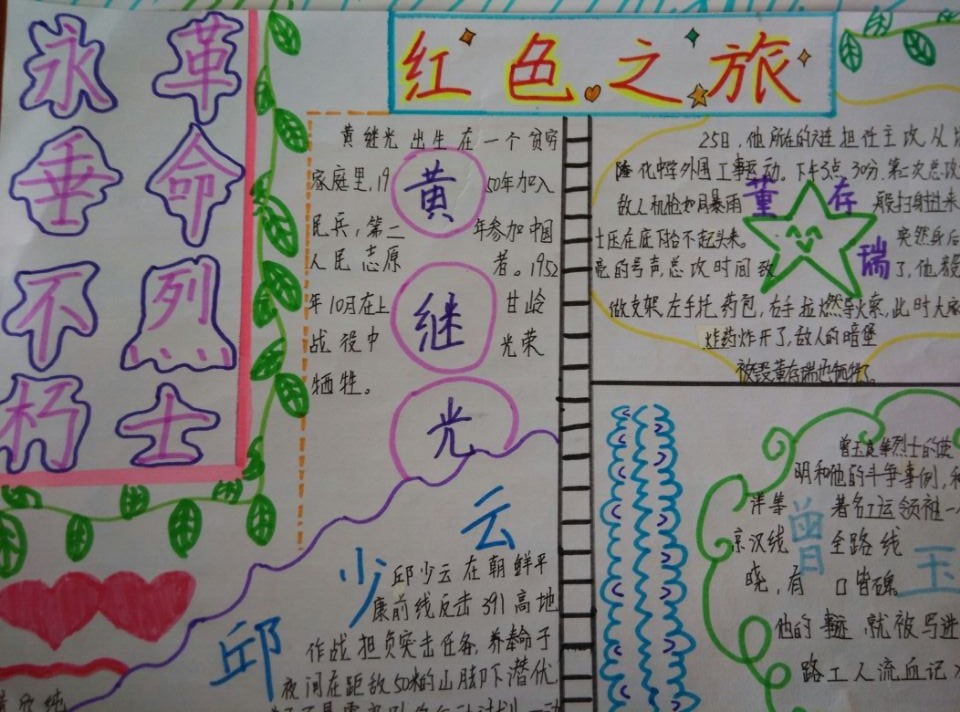 红色之旅
革命烈士
永垂不朽
黄继光出生在一个贫穷
家庭里,19 50年加入
民兵,第二 年参加中国
人民志原 者。1952
年10月在上 甘岭
战役中 光荣
牺牲。
黄
继
光
邱少云
邱少云在朝鲜平
康前线反击391高地
作战担负突击任务,
夜间在距敌50米的山脚下潜伏
25日,他所在的 连担任主攻,从
外围工事 动。下午3点30分,第二次总攻
敌人机枪如同暴雨 般扫射过来
士压在底下抬不起头来。 突然身后
亮的号声,总攻时间 了,他
做支架左手托药包,右手拉燃导火索,此时大
炸药炸开了,敌人的暗堡
被毁董存瑞也牺牲了。
董存瑞
烈士的
明和他的斗争事例,
洋等 著名工运领袖一
京汉线 全路线
晓,有 口皆碑
他的事迹就被写进
路工人流血记
曾玉